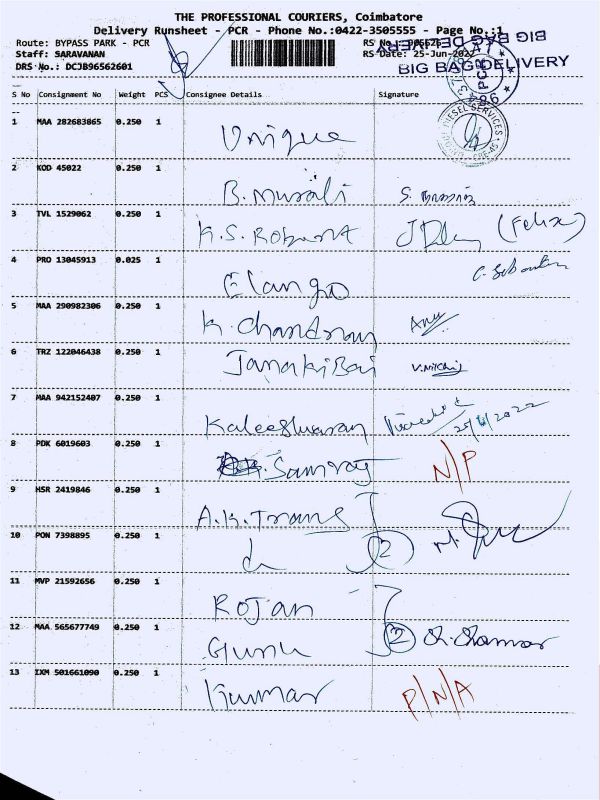 THE PROFESSIONAL COURIERS, Coimbatore
Delivery Runsheet - PCR - Phone No.:0422-3505555 - Page No.:1
Route: BYPASS PARK - PCR
Staff: SARAVANAN
RS Date: 25-Jun-2022
DRS No.: DCJB96562601
BIG BAG DELIVERY
BIG BAG DELIVERY
DIESEL SERVICES
S No Consignment No Weight PCS Consignee Details Signature
1 MAA 282683865 0.250 1 Unique
2 KOD 45022 0.250 1 B. Murali
3 TVL 1529062 0.250 1 K.S. Robert (Felix)
4 PRO 13045913 0.025 1 Elango
5 MAA 290982306 0.250 1 K. Chandran
6 TRZ 122046438 0.250 1 Janaki Bai
7 MAA 942152407 0.250 1 Kaleeshwaran 25/6/2022
8 PDK 6019603 0.250 1 Samraj N/P
9 HSR 2419846 0.250 1 A.K. Trans
10 PON 7398895 0.250 1 2
11 MVP 21592656 0.250 1 Rojan
12 MAA 565677749 0.250 1 Gunu 2
13 IXM 501661090 0.250 1 Kumar P/N/A